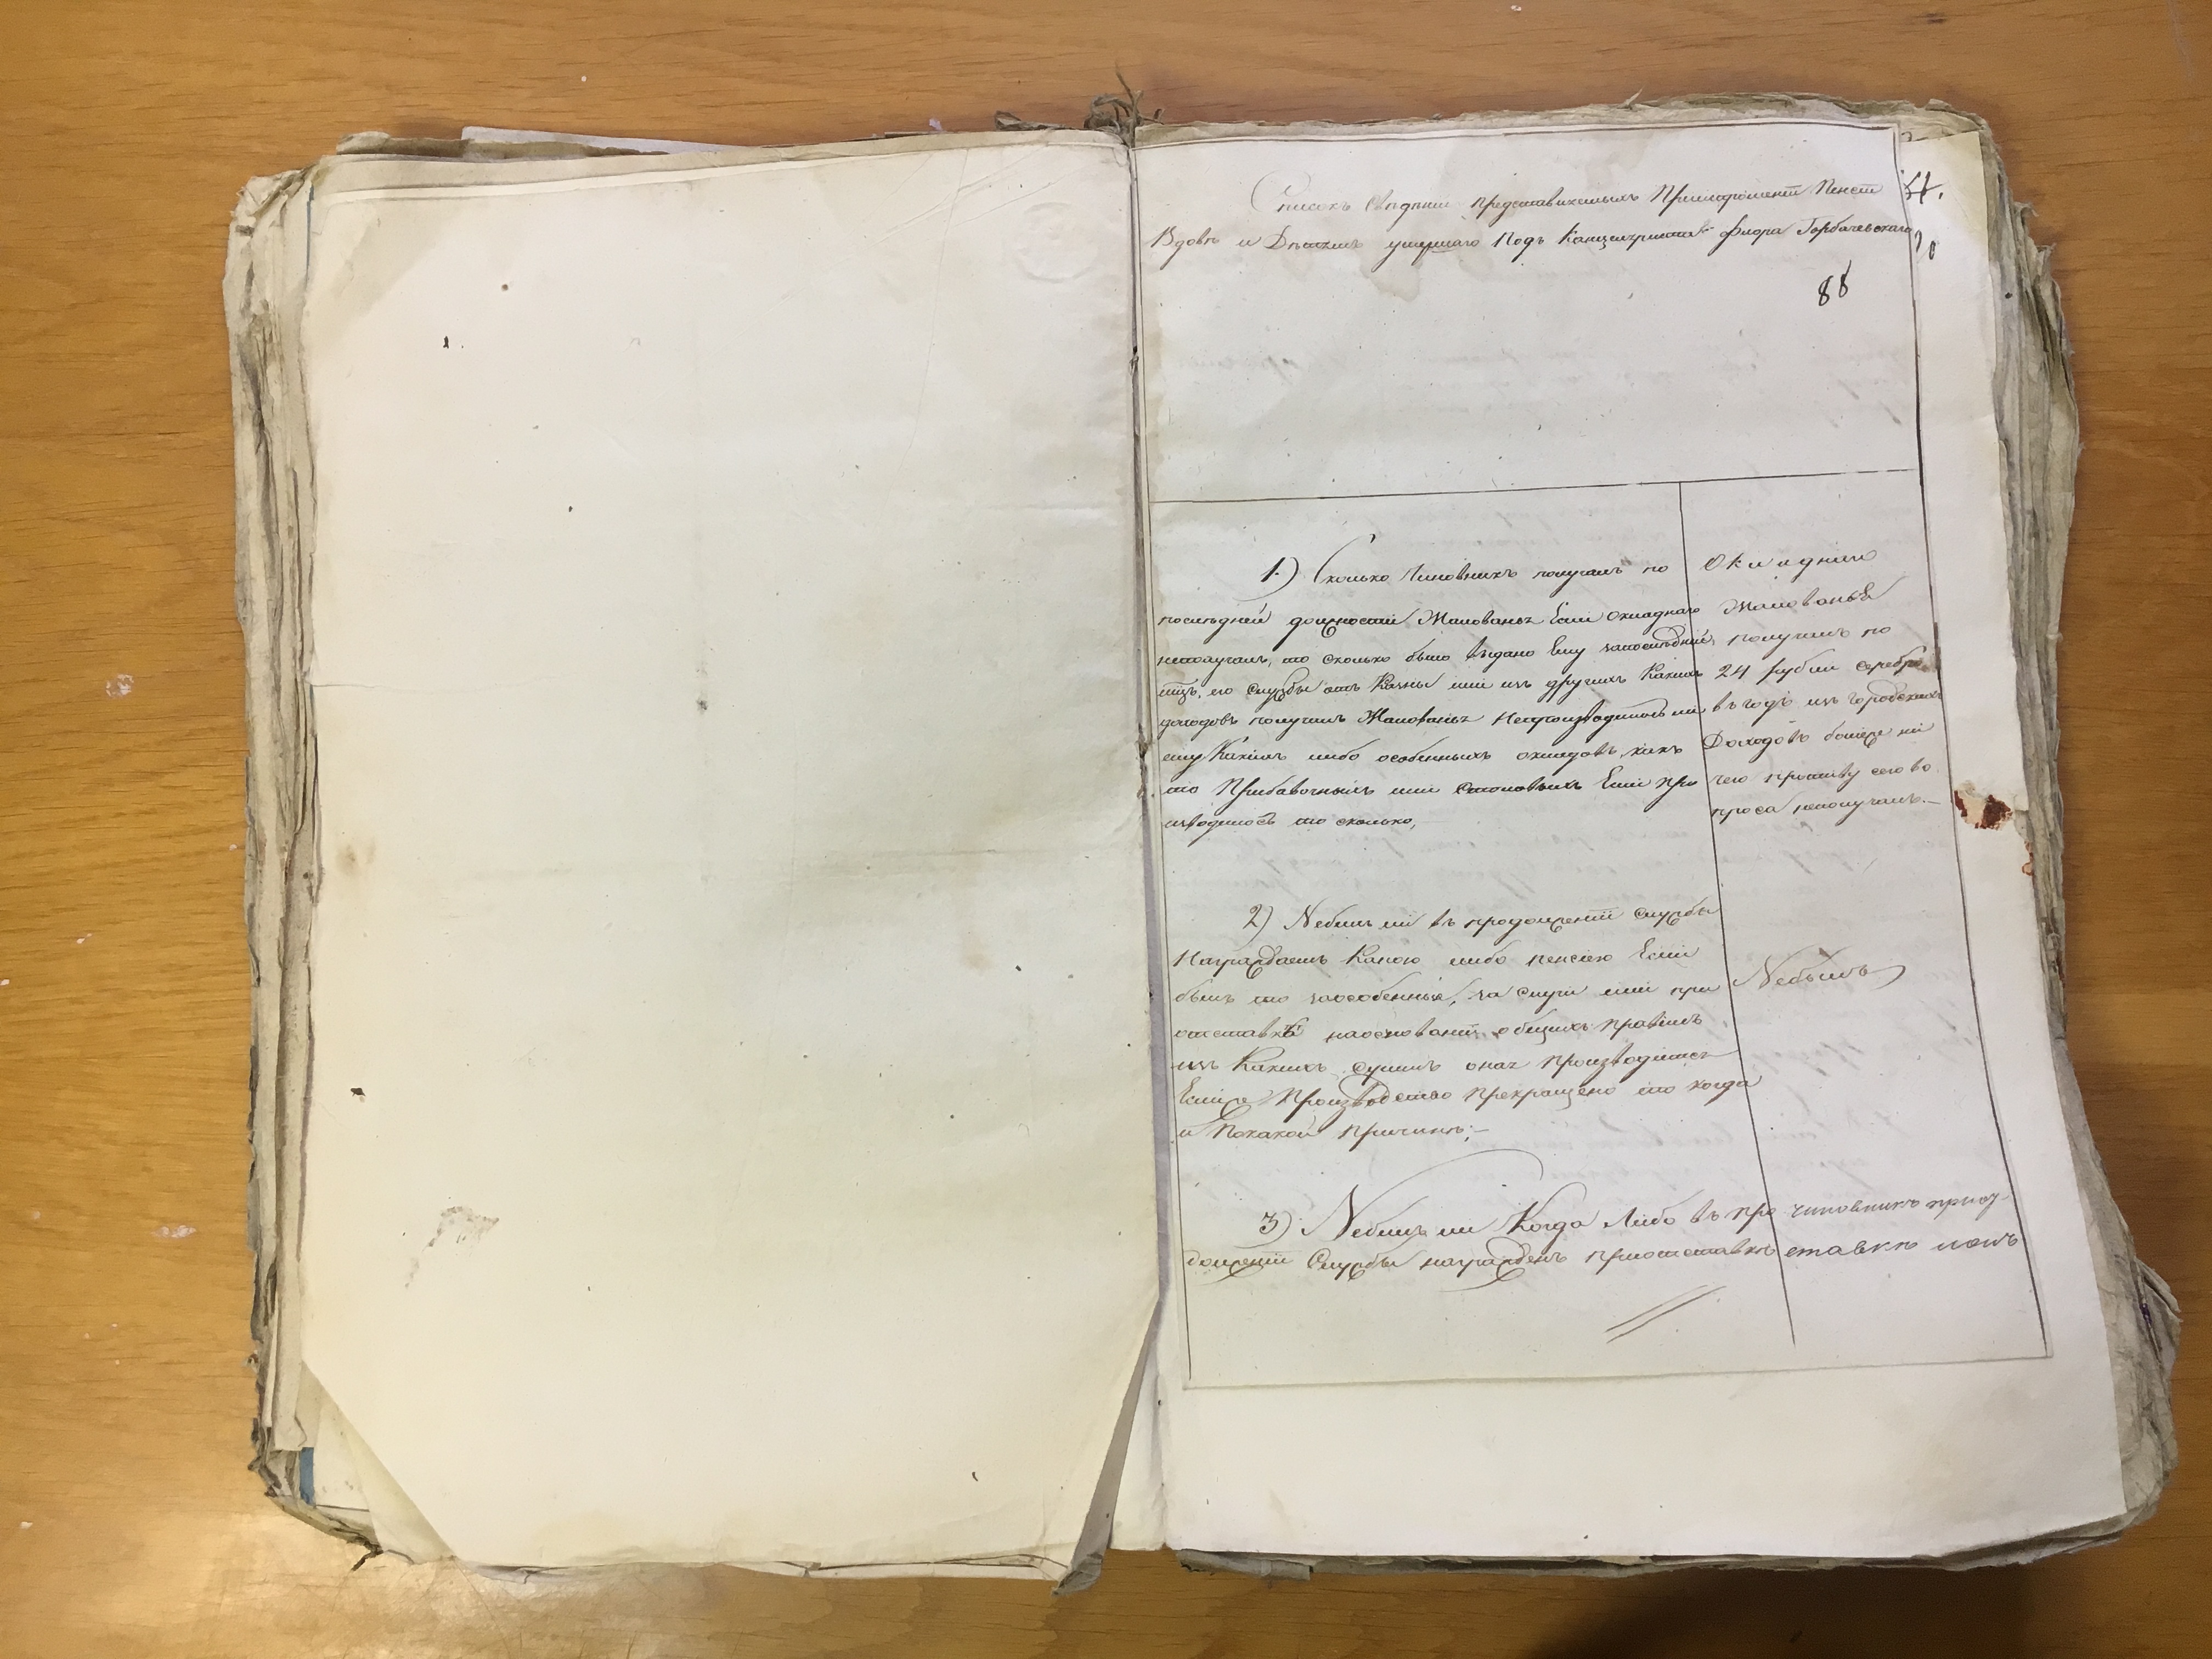 Списокъ Свѣдѣній представляемыхъ Прииспрошеніи Пенсіи
Вдовѣ и Дѣтямъ умершаго Подъ Канцеляриста Горбачевскаго
88
1.) Сколько Чиновникъ получалъ по
послѣдней должности Жалованья Если Окладнаго
неполучалъ, то сколько было выдано Ему запослѣдній
его службы отъ Казны или изъ другихъ Какихъ
доходовъ получалъ Жалованья Непроизводилось ли
ему Какихъ либо особенныхъ окладовъ, какъ
то Прибавочныхъ или столовыхъ Если про
изводилось то сколько,
Окладнаго
Жалованья
получалъ по
24 рубли серебр
въ годъ изъ Городскихъ
Доходовъ болѣе ни
чего противу сего во
проса неполучалъ.—
2) Небылъ ли въ продолженіи службы
Награждаемъ Какою либо пенсіею Если
былъ то заособенныя, за слуги или при
отставкѣ наоснованіи общихъ правилъ
изъ Какихъ суммъ оная производилась
Еслиже Производство прекращено то когда
и Покакой причинѣ;—
Небылъ
3) Небылъ ли Когда Либо въ про
долженіи Службы награжденъ приотставкѣ
чиновникъ приот-
ставкѣ